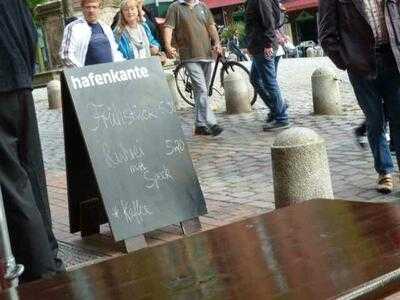 hafenkante
Frühstück
Rührei 5,70
mit
Speck
* Kaffee